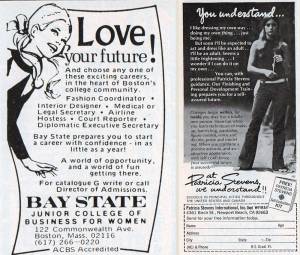 Love
your future!
And choose any one of
these exciting careers,
in the heart of Boston's
college community.
Fashion Coordinator •
Interior Designer • Medical or
Legal Secretary • Airline
Hostess • Court Reporter •
Diplomatic Executive Secretary
Bay State prepares you to start
a career with confidence - in as
little as a year!
A world of opportunity,
and a world of fun
getting there.
For catalogue G write or call
Director of Admissions.
BAY STATE
JUNIOR COLLEGE OF
BUSINESS FOR WOMEN
122 Commonwealth Ave.
Boston, Mass. 02116
(617) 266-0220
ACBS Accredited
You understand...
I like dressing my own way . . .
doing my own thing . . . just
being me.
But soon I'll be expected to
act and dress like an adult.
I'll be an adult. Seems a
little frightening . . . I
wonder if I can do it on
my own.
You can, with
professional Patricia Stevens
guidance. Our Finishing and
Personal Development Train-
ing prepares you for a self-
assured future.
at
Patricia Stevens,
we understand!!
SCHOOLS IN PRINCIPAL CITIES THROUGHOUT
THE UNITED STATES AND CANADA
Patricia Stevens International, Inc.
4361 Birch St., Newport Beach, CA 92660
Send for your free information today.
Name
Age
Address
City
State
Zip
(AC) & Phone
H.S. Grad. Yr.